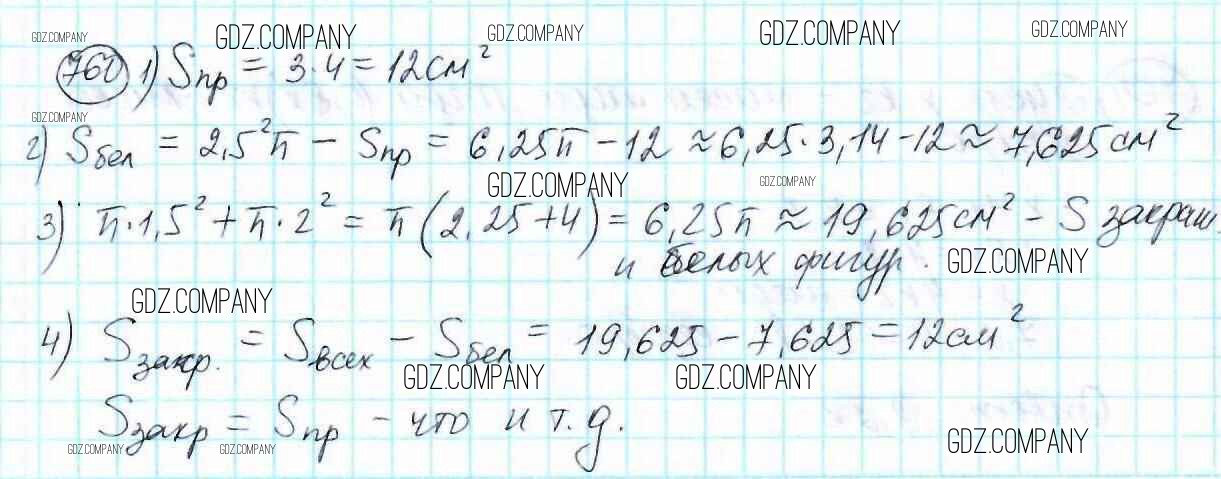 GDZ.COMPANY GDZ.COMPANY GDZ.COMPANY GDZ.COMPANY GDZ.COMPANY
760 1) Sпр = 3·4 = 12 см²
GDZ.COMPANY
2) Sбел = 2,5²π − Sпр = 6,25π − 12 ≈ 6,25·3,14 − 12 ≈ 7,625 см²
GDZ.COMPANY GDZ.COMPANY
3) π·1,5² + π·2² = π(2,25+4) = 6,25π ≈ 19,625 см² − S закраш.
и белых фигур. GDZ.COMPANY
GDZ.COMPANY
4) Sзакр. = Sвсех − Sбел = 19,625 − 7,625 = 12 см²
GDZ.COMPANY GDZ.COMPANY
Sзакр = Sпр − что и т.д.
GDZ.COMPANY GDZ.COMPANY GDZ.COMPANY